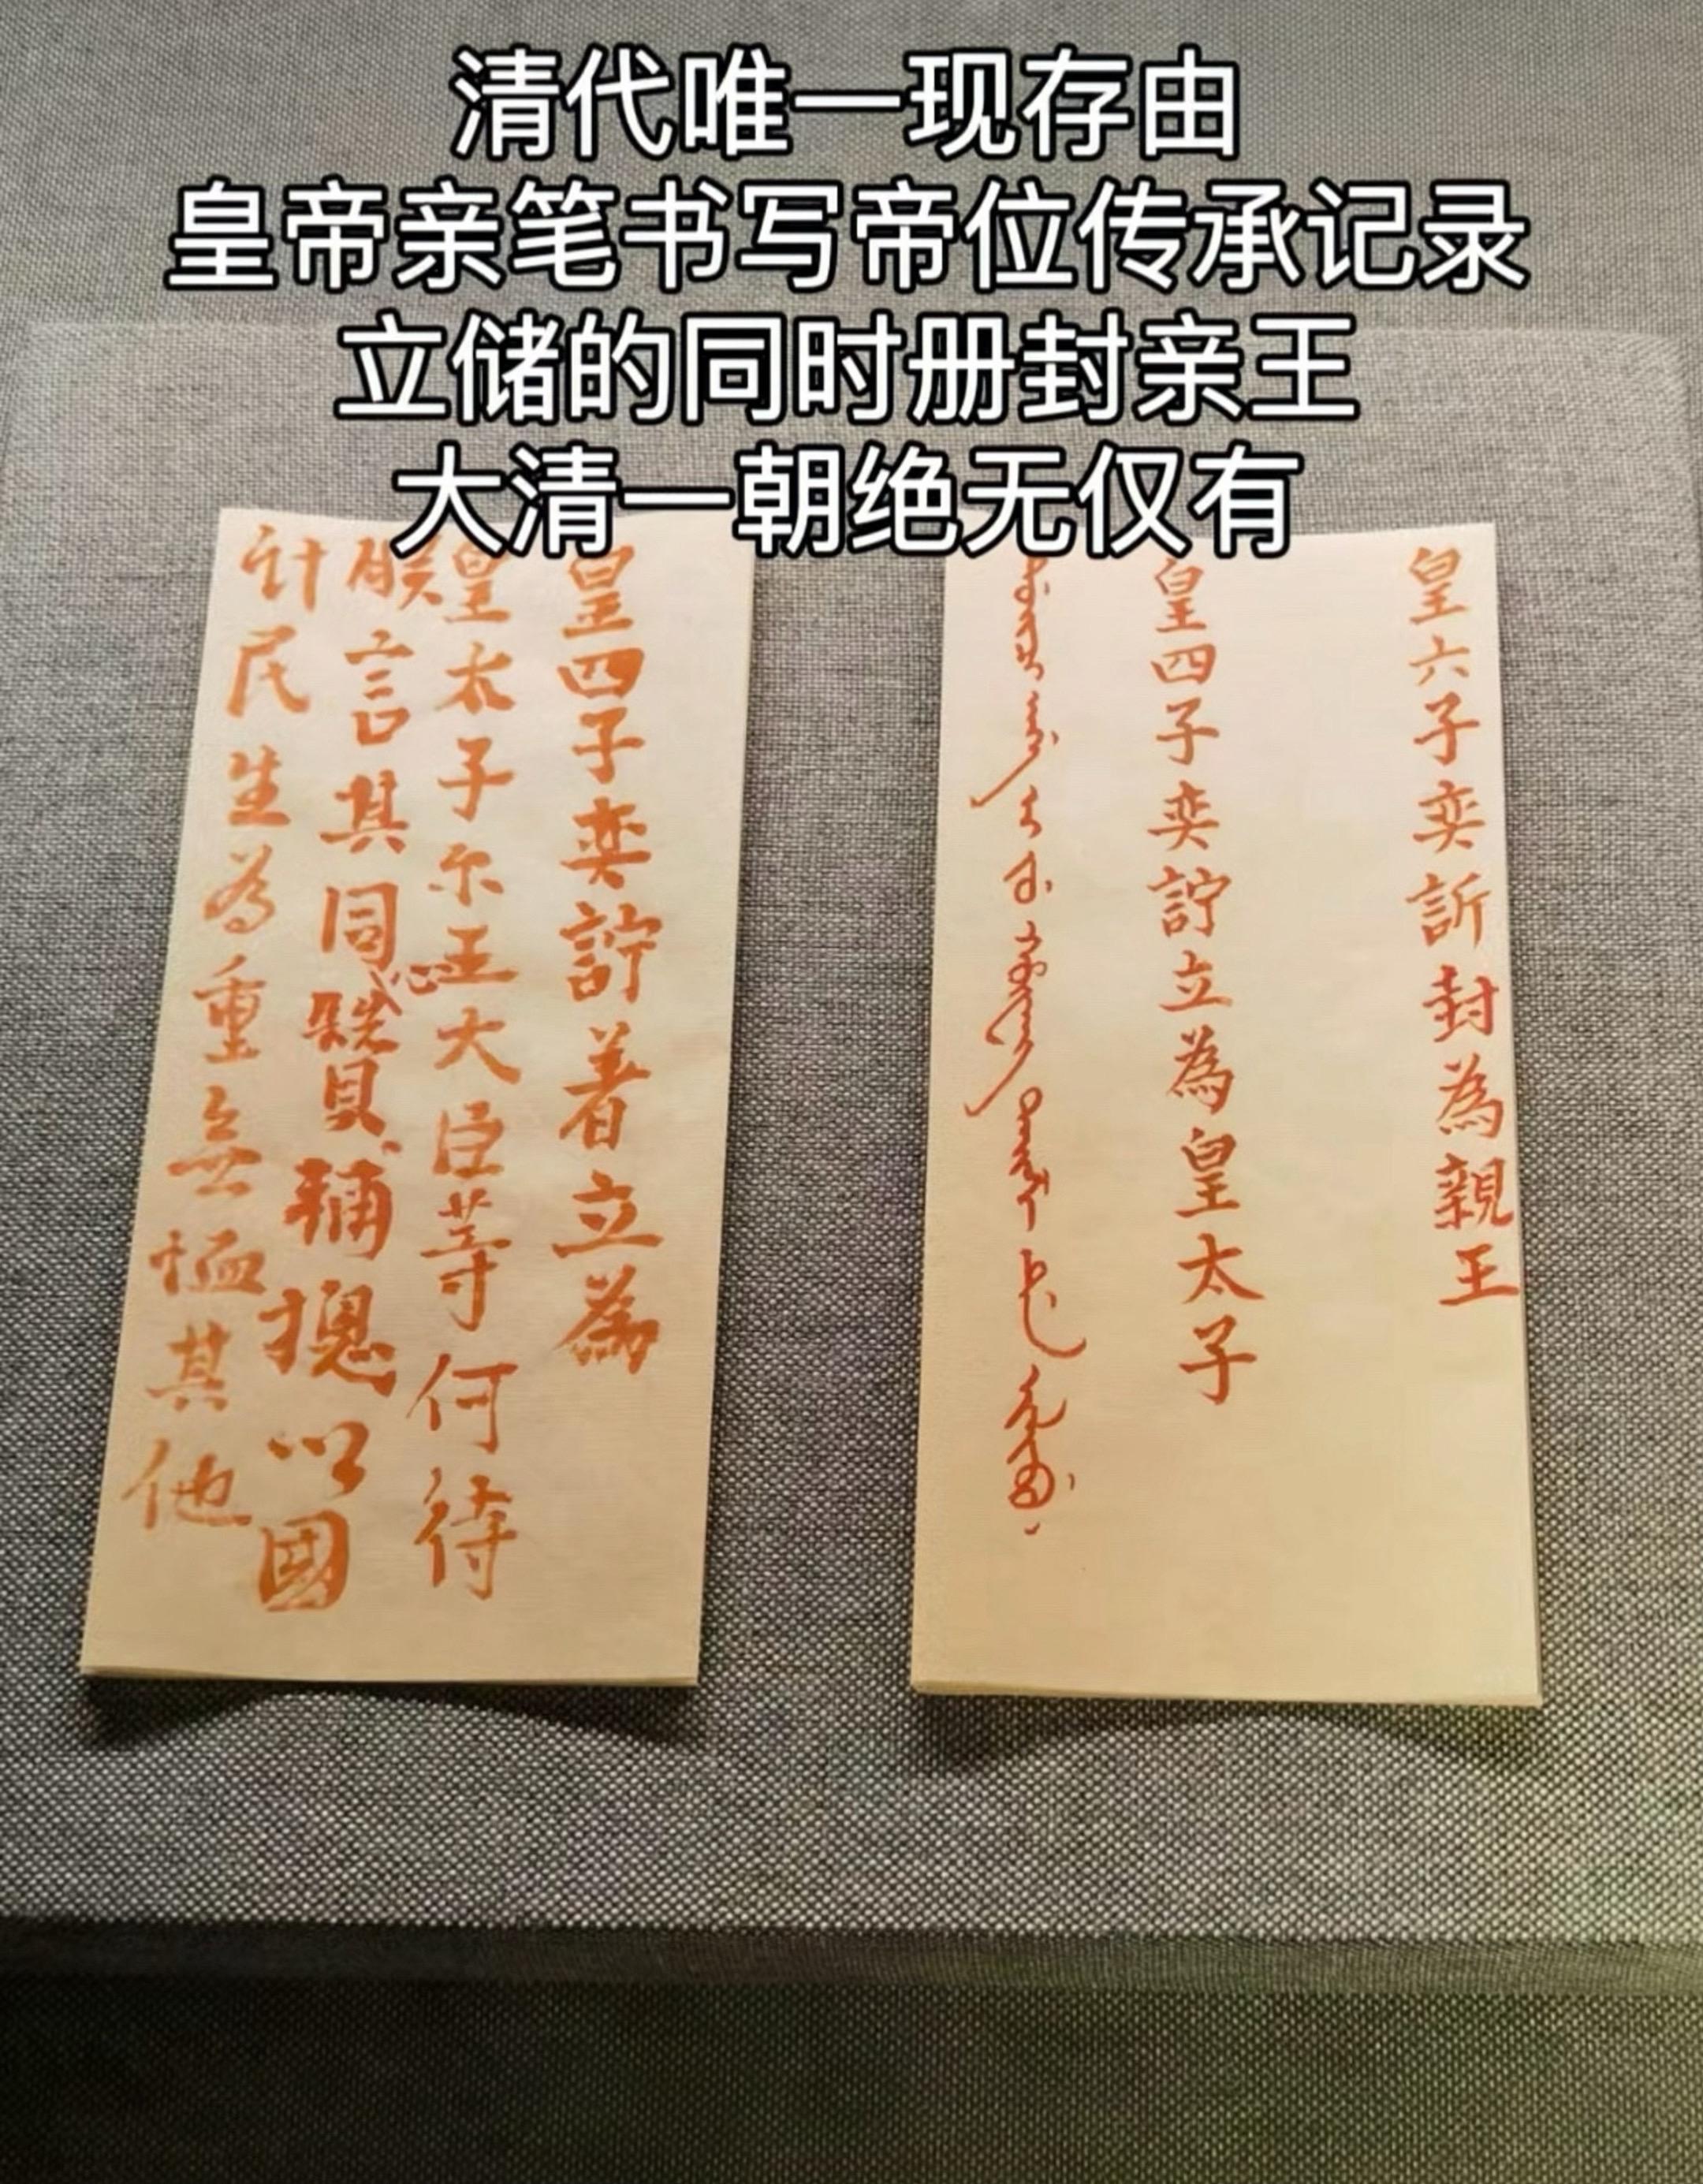 清代唯一现存由
皇帝亲笔书写帝位传承记录
立储的同时册封亲王
大清一朝绝无仅有
皇六子奕訢封為親王
皇四子奕詝立為皇太子
皇四子奕詝着立為
皇太子尔王大臣等何待
朕言其同心賛輔總以國
計民生為重無恤其他